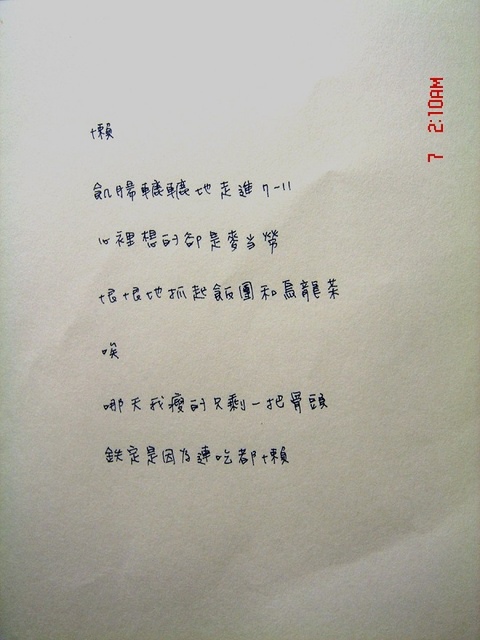 懶
飢腸轆轆地走進7-11
心裡想的卻是麥当勞
恨恨地抓起飯團和烏龍茶
唉
哪天我瘦的只剩一把骨頭
鉄定是因为連吃都懶
7 2:10AM